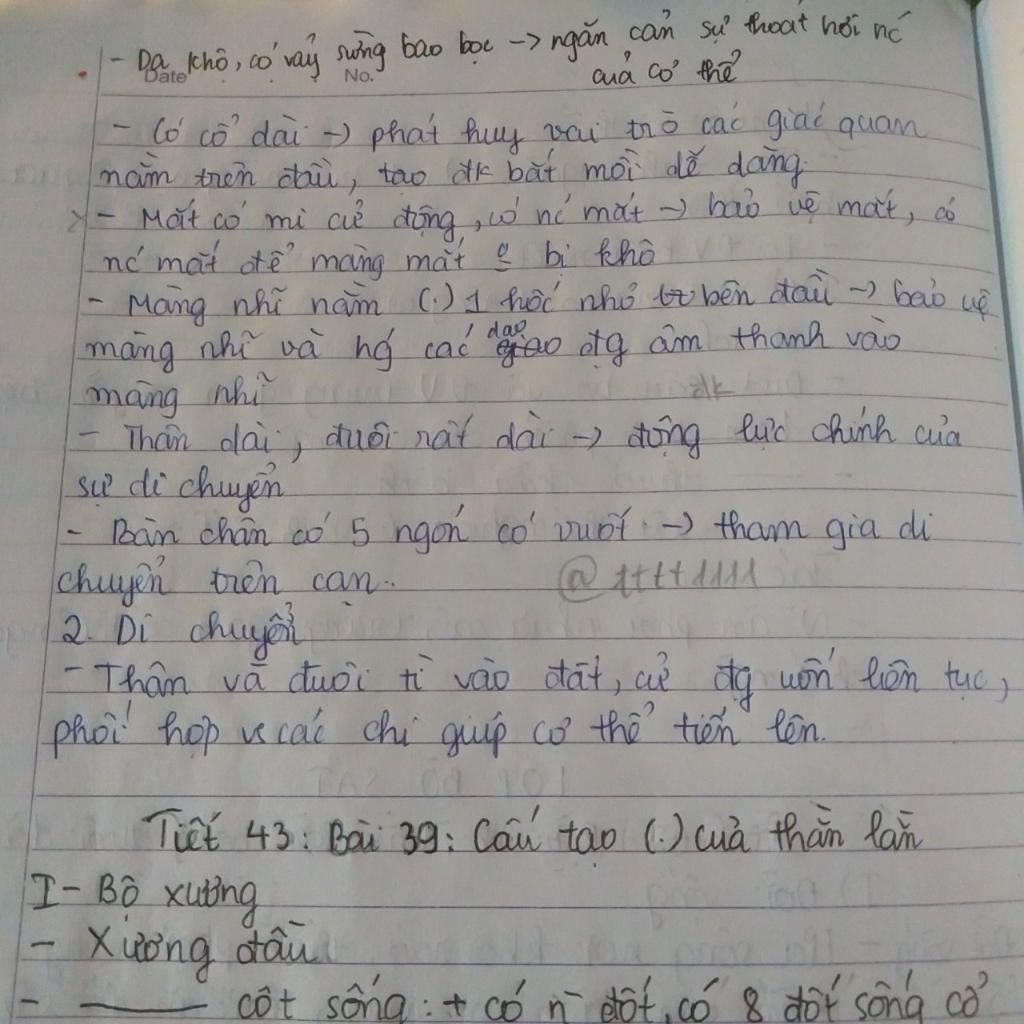 - Da khô, có vảy sừng bao bọc → ngăn cản sự thoát hơi nć
Date No. của cơ thể
- Có cổ dài → phát huy vai trò các giác quan
nằm trên đầu, tạo đk bắt mồi dễ dàng
- Mắt có mi cử động, có nć mắt → bảo vệ mắt, có
nć mắt để màng mắt bị khô
- Màng nhĩ nằm (.) 1 hốc nhỏ bên đầu → bảo vệ
màng nhĩ và hg các dao đg âm thanh vào
màng nhĩ
- Thân dài, đuôi rất dài → động lực chính của
sự di chuyển
- Bàn chân có 5 ngón có vuốt → tham gia di
chuyển trên cạn..
@ttttt1111
2. Di chuyển
- Thân và đuôi tì vào đất, cử đg uốn liên tục,
phối hợp vs các chi giúp cơ thể tiến lên.
Tiết 43: Bài 39: Cấu tạo (.) của thằn lằn
I - Bộ xương
- Xương đầu
- ——— cột sống: + có n̄ đốt, có 8 đốt sống cổ